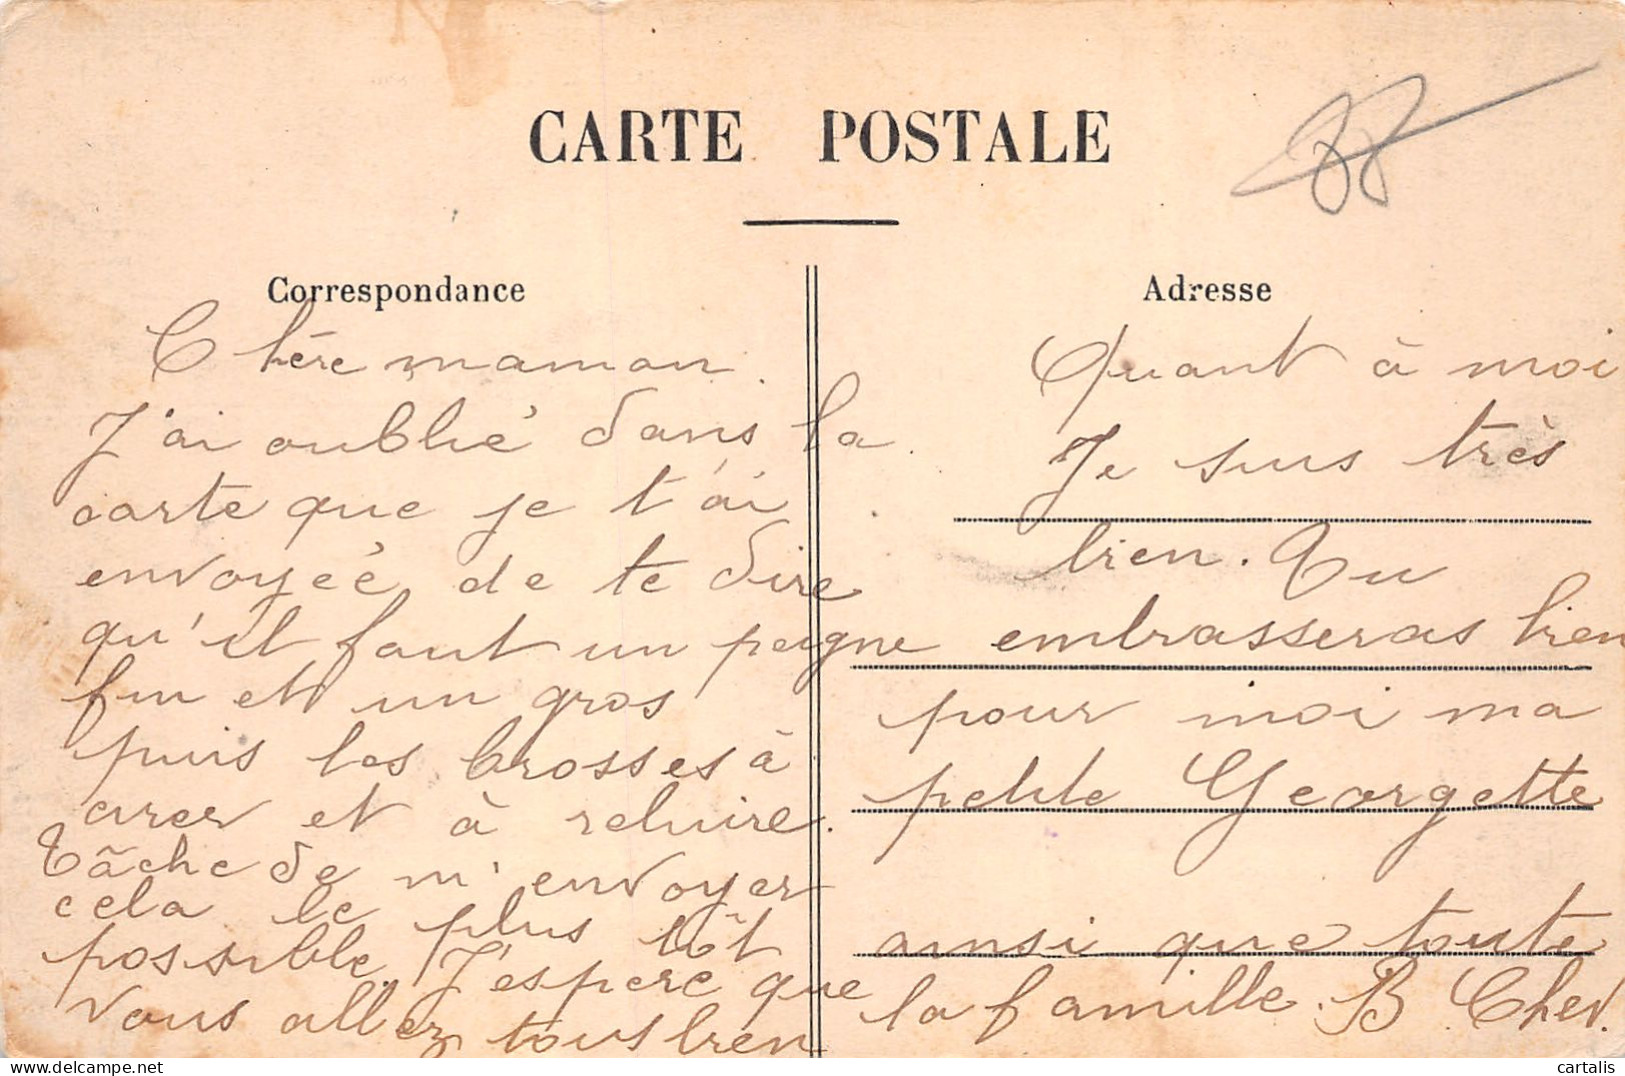 CARTE POSTALE
88
Correspondance
Chère maman.
J'ai oublié dans la
carte que je t'ai
envoyéé de te dire
qu'il faut un peigne
fin et un gros
puis les brosses à
cirer et à reluire.
Tâche de m'envoyer
cela le plus tôt
possible. J'espère que
vous allez tous bien
Adresse
Quant à moi
Je suis très
bien. Tu
embrasseras bien
pour moi ma
petite Georgette
ainsi que toute
la famille. B Chev.
cartalis